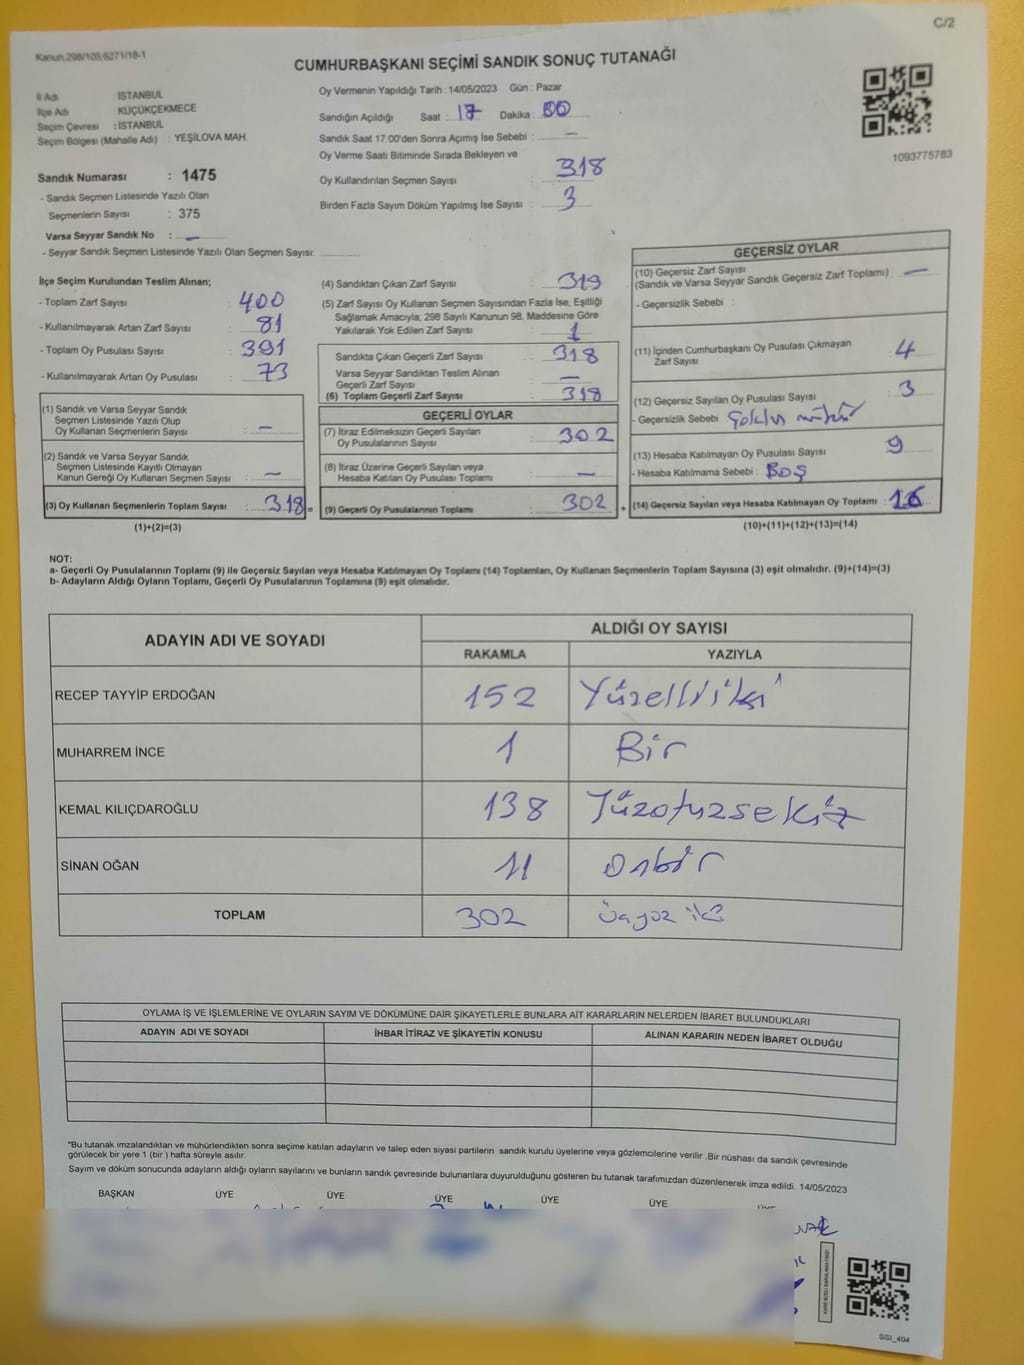 C/2
Kanun:298/105,6271/18-1
CUMHURBAŞKANI SEÇİMİ SANDIK SONUÇ TUTANAĞI
İl Adı : İSTANBUL
İlçe Adı : KÜÇÜKÇEKMECE
Seçim Çevresi : İSTANBUL
Seçim Bölgesi (Mahalle Adı) : YEŞİLOVA MAH.
Sandık Numarası : 1475
- Sandık Seçmen Listesinde Yazılı Olan
Seçmenlerin Sayısı : 375
Varsa Seyyar Sandık No : —
- Seyyar Sandık Seçmen Listesinde Yazılı Olan Seçmen Sayısı:
Oy Vermenin Yapıldığı Tarih : 14/05/2023 Gün : Pazar
Sandığın Açıldığı Saat : 17 Dakika : 00
Sandık Saat 17:00'den Sonra Açımış İse Sebebi : —
Oy Verme Saati Bitiminde Sırada Bekleyen ve
Oy Kullandırılan Seçmen Sayısı : 318
Birden Fazla Sayım Döküm Yapılmış İse Sayısı : 3
1093775783
İlçe Seçim Kurulundan Teslim Alınan;
- Toplam Zarf Sayısı : 400
- Kullanılmayarak Artan Zarf Sayısı : 81
- Toplam Oy Pusulası Sayısı : 391
- Kullanılmayarak Artan Oy Pusulası : 73
(1) Sandık ve Varsa Seyyar Sandık
Seçmen Listesinde Yazılı Olup
Oy Kullanan Seçmenlerin Sayısı : —
(2) Sandık ve Varsa Seyyar Sandık
Seçmen Listesinde Kayıtlı Olmayan
Kanun Gereği Oy Kullanan Seçmen Sayısı : —
(3) Oy Kullanan Seçmenlerin Toplam Sayısı : 318 =
(1)+(2)=(3)
(4) Sandıktan Çıkan Zarf Sayısı : 319
(5) Zarf Sayısı Oy Kullanan Seçmen Sayısından Fazla İse, Eşitliği
Sağlamak Amacıyla; 298 Sayılı Kanunun 98. Maddesine Göre
Yakılarak Yok Edilen Zarf Sayısı : 1
Sandıkta Çıkan Geçerli Zarf Sayısı : 318
Varsa Seyyar Sandıktan Teslim Alınan
Geçerli Zarf Sayısı : —
(6) Toplam Geçerli Zarf Sayısı : 318
GEÇERLİ OYLAR
(7) İtiraz Edilmeksizin Geçerli Sayılan
Oy Pusulalarının Sayısı : 302
(8) İtiraz Üzerine Geçerli Sayılan veya
Hesaba Katılan Oy Pusulası Toplamı : —
(9) Geçerli Oy Pusulalarının Toplamı : 302 +
GEÇERSİZ OYLAR
(10) Geçersiz Zarf Sayısı
(Sandık ve Varsa Seyyar Sandık Geçersiz Zarf Toplamı) : —
- Geçersizlik Sebebi :
(11) İçinden Cumhurbaşkanı Oy Pusulası Çıkmayan
Zarf Sayısı : 4
(12) Geçersiz Sayılan Oy Pusulası Sayısı : 3
- Geçersizlik Sebebi :
(13) Hesaba Katılmayan Oy Pusulası Sayısı : 9
- Hesaba Katılmama Sebebi : BOŞ
(14) Geçersiz Sayılan veya Hesaba Katılmayan Oy Toplamı : 16
(10)+(11)+(12)+(13)=(14)
NOT:
a- Geçerli Oy Pusulalarının Toplamı (9) ile Geçersiz Sayılan veya Hesaba Katılmayan Oy Toplamı (14) Toplamları, Oy Kullanan Seçmenlerin Toplam Sayısına (3) eşit olmalıdır. (9)+(14)=(3)
b- Adayların Aldığı Oyların Toplamı, Geçerli Oy Pusulalarının Toplamına (9) eşit olmalıdır.
ADAYIN ADI VE SOYADI ALDIĞI OY SAYISI
RAKAMLA YAZIYLA
RECEP TAYYİP ERDOĞAN 152 Yüzelliiki
MUHARREM İNCE 1 Bir
KEMAL KILIÇDAROĞLU 138 Yüzotuzsekiz
SİNAN OĞAN 11 Onbir
TOPLAM 302 üçyüz iki
OYLAMA İŞ VE İŞLEMLERİNE VE OYLARIN SAYIM VE DÖKÜMÜNE DAİR ŞİKAYETLERLE BUNLARA AİT KARARLARIN NELERDEN İBARET BULUNDUKLARI
ADAYIN ADI VE SOYADI İHBAR İTİRAZ VE ŞİKAYETİN KONUSU ALINAN KARARIN NEDEN İBARET OLDUĞU
*Bu tutanak imzalandıktan ve mühürlendikten sonra seçime katılan adayların ve talep eden siyasi partilerin sandık kurulu üyelerine veya gözlemcilerine verilir .Bir nüshası da sandık çevresinde
görülecek bir yere 1 (bir ) hafta süreyle asılır.
Sayım ve döküm sonucunda adayların aldığı oyların sayılarını ve bunların sandık çevresinde bulunanlara duyurulduğunu gösteren bu tutanak tarafımızdan düzenlenerek imza edildi. 14/05/2023
BAŞKAN ÜYE ÜYE ÜYE ÜYE ÜYE
SGI_404